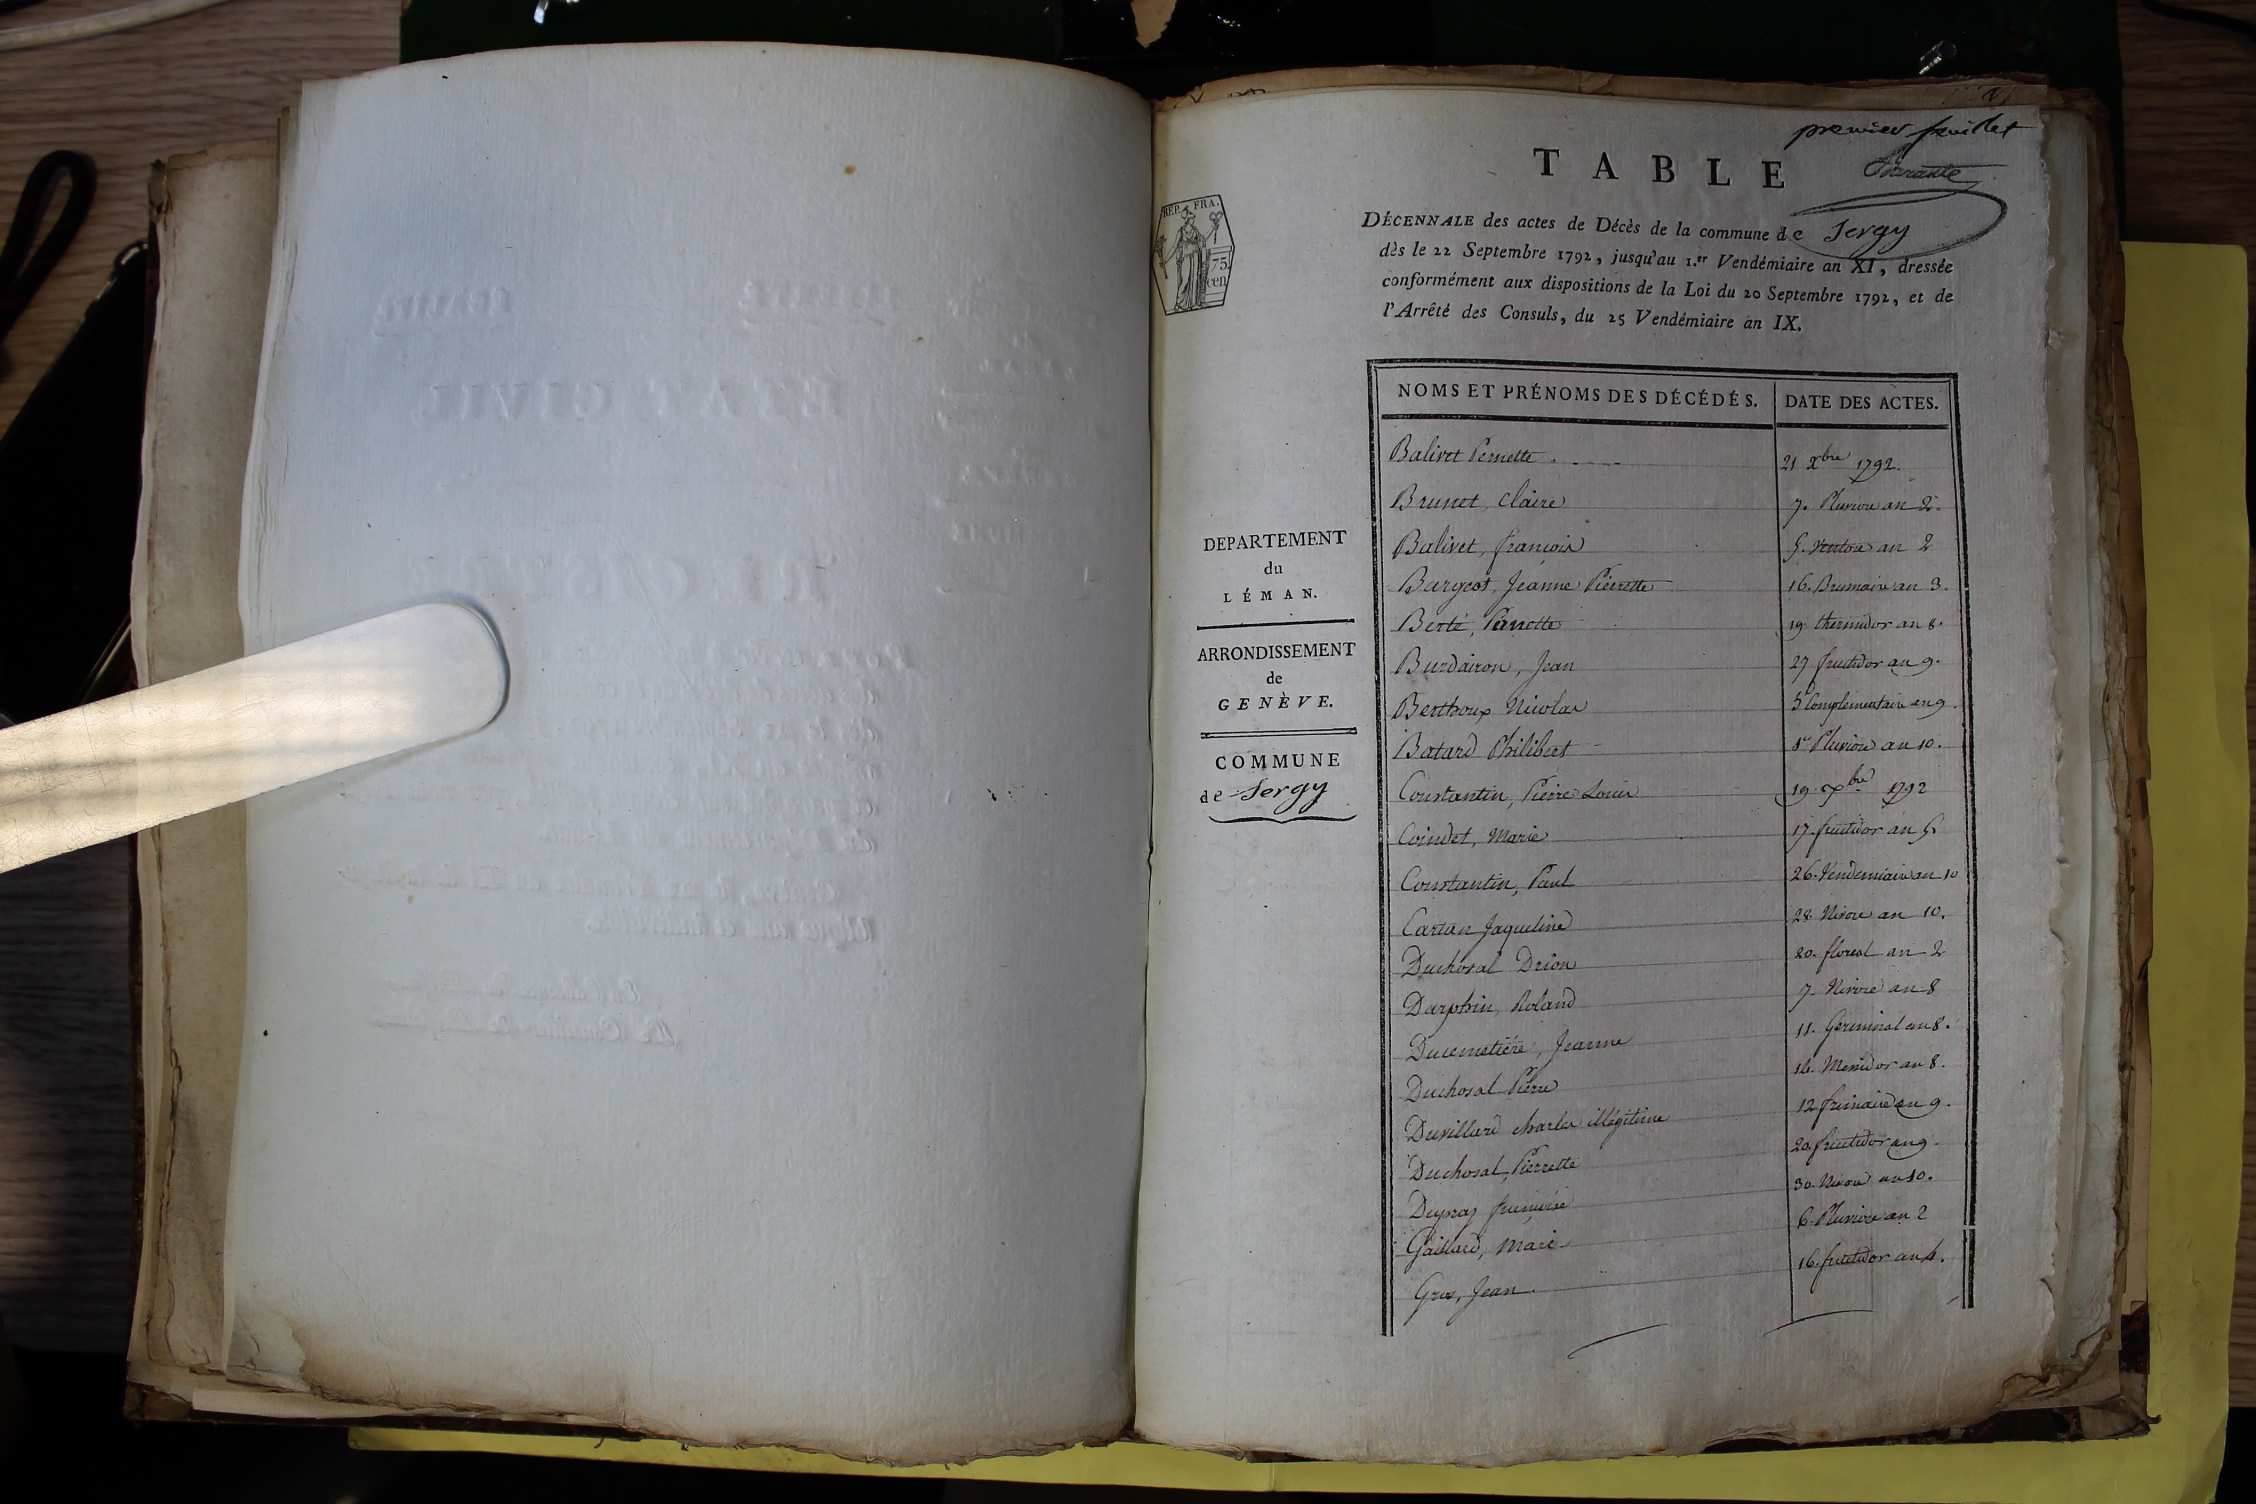 premier feuillet
TABLE
REP. FRA.
75.
cen
DÉCENNALE des actes de Décès de la commune de Sergy
dès le 22 Septembre 1792, jusqu'au 1.er Vendémiaire an XI, dressée
conformément aux dispositions de la Loi du 20 Septembre 1792, et de
l'Arrêté des Consuls, du 25 Vendémiaire an IX.
DEPARTEMENT
du
LÉMAN.
ARRONDISSEMENT
de
GENÈVE.
COMMUNE
de Sergy
NOMS ET PRÉNOMS DES DÉCÉDÉS. DATE DES ACTES.
Balivet Pernette 21 Xbre 1792.
Brunet, Claire 7. Pluviose an 2.
Balivet, françois 5. Ventose an 2
Bargeot, Jeanne Pierrette 16. Brumaire an 3.
Berté, Pernette 19 thermidor an 8.
Burdairon, Jean 27 fructidor an 9.
Berthoux Nicolas 5 Complementaire an 9.
Batard Philibert 1er Pluviose an 10.
Constantin, Pierre Louis 19. Xbre 1792
Coindet, Marie 17. fructidor an 5.
Constantin, Paul 26. Vendemiaire an 10
Cartan Jaqueline 28 Nivose an 10.
Duchosal 20. floreal an 2
Darphin, Roland 7. Nivose an 8
Ducimetiére, Jeanne 11. Germinal an 8.
Duchosal Pierre 14. Messidor an 8.
Duvillard charles illégitime 12 frimaire an 9.
Duchosal, Pierrette 20 fructidor an 9.
françoise 30. Nivose an 10.
Gaillard, Marie 6. Pluviose an 2
Gros, Jean 16. fructidor an 4.